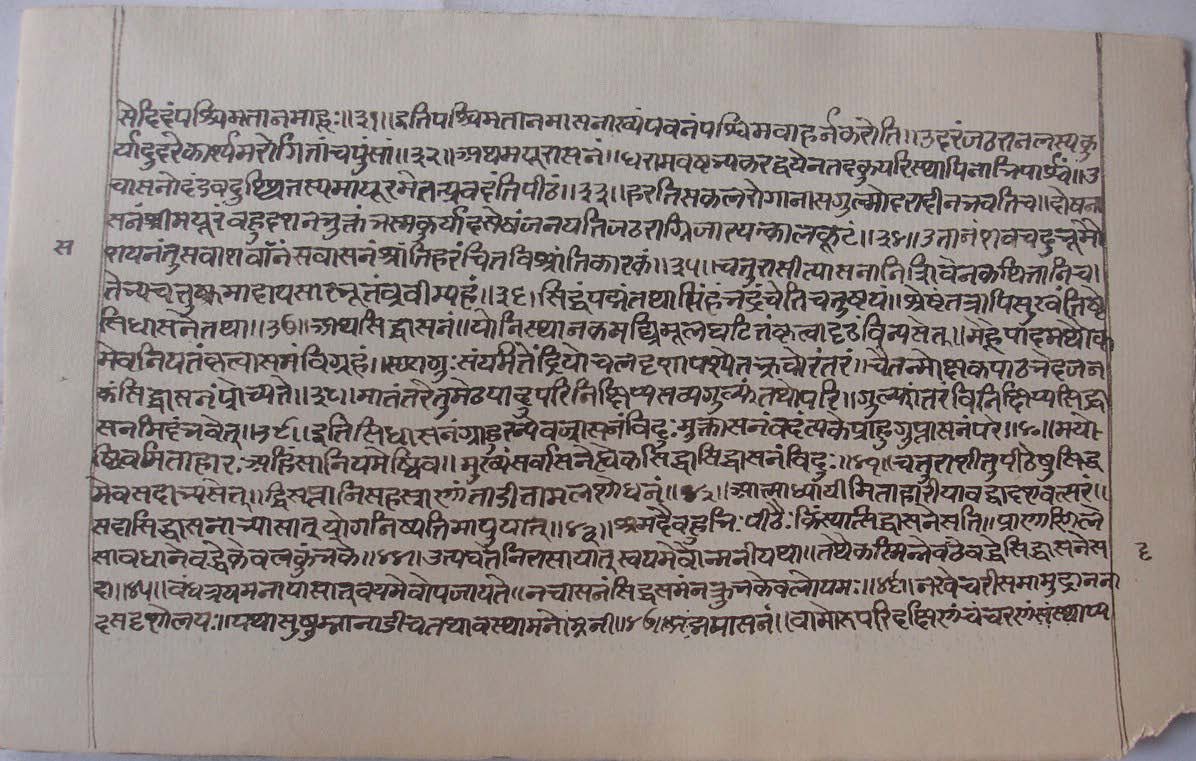 सेदिदंपश्चिमतानमाहुः॥३१॥इतिपश्चिमतानमासनाख्यंपवनंपश्चिमवाहनंकरोति॥उदरंजठरानलस्यकु
र्यादुदरेकार्श्यमरोगितांचपुंसां॥३२॥अथमयूरासनं॥धरामवष्टभ्यकरद्वयेनतत्कुर्परिस्थापितनाभिपार्श्वः॥उ
चासनोदंडवदुत्थितस्यमायूरमेतत्प्रवदंतिपीठं॥३३॥हरतिसकलरोगानासगुल्मोदरादीनभवतिच॥दोषना
सनंश्रीमयूरंबहुदशनभुक्तंभस्मकुर्यादसेषंजनयतिजठराग्निजारयेत्कालकूटं॥३४॥उतानंशवचदुभूमौ
शयनंतुसवाशवासनंसवासनंश्रांतिहरंचितविश्रांतिकारकं॥३५॥चतुरासीत्यासनानिशिवेनकथितानिच।
तेभ्यचतुष्कमादायसारभूतंब्रवीम्यहं॥३६॥सिद्धंपद्मंतथासिंहंभद्रंचेतिचतुष्टयं॥श्रेष्ठंतत्रापिसुखंतिष्ठे
सिधासनेतथा॥३७॥अथसिद्धासनं॥योनिस्थानकमंघ्रिमूलघटितंकृत्वादृढविन्यसेत्॥मेढ्रपादमथैक
मेवनियतंकृत्वासमंविग्रहं॥स्थाणुःसंयमितेंद्रियोचलदृशापश्येतभ्रुवोरंतरं॥चैतन्मोक्षकपाठभेदजन
कंसिद्धासनंप्रोच्यते॥३८॥मातंतरेतुमेढपादुपरिनिक्षिप्यसव्यगुल्फंतथोपरि॥गुल्फांतरविनिक्षिप्यसिद्धा
सनमिदंभवेत्॥३९॥इतिसिधासनंप्राहुरन्येवज्रासनंविदुः॥मुक्तासनंवदंत्यकेप्राहुगुप्तासनंपर॥४०॥मयो
ष्विवमिताहारःअहिंसानियमेष्विव॥मुख्यंसर्वासनेष्वेकंसिद्धासिद्धासनंविदुः॥४१॥चतुराशीतुपीठेषुसिद्ध
मेवसदाभ्यसेत्॥द्विसप्ततानिसहस्त्राणांनाडीतामलशोधनं॥४२॥आत्माध्यायीमिताहारीयावद्वादशवत्सरं॥
सदासिद्धासनाभ्यासात्योगनिष्पतिमाप्नुयात्॥४३॥श्रमदैवहुभिःपीठैःकिंस्यात्सिद्धासनेसति॥प्राणानिले
सावधानेवद्धेकेवलकुंभके॥४४॥उत्पवतेनिलसायात्स्वयमेवोन्मनीयथा॥तथैकस्मिन्नेवदृढेबद्धेसिद्धासनेस
दा॥४५॥बंधत्रयमनायासात्स्वयमेवोपजायते॥नचासनंसिद्धसमंनकुंभकेवलोपमः॥४६॥नखेचरीसमामुद्राननां
दसदृशोलयः॥यथासुषुम्नानाडीचतथावस्थामनोन्मनी॥४७॥अथपद्मासनं॥वामोरूपरिदक्षिणंचचरणंसंस्थाप्य
स
६